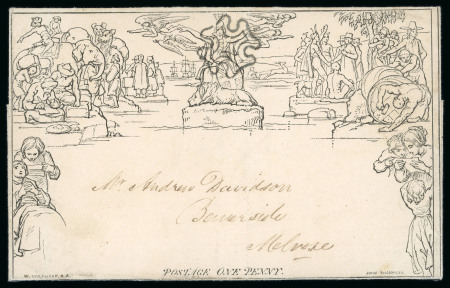 Mr Andrew Davidson
Bemerside
Melrose
POSTAGE ONE PENNY.
W. MULREADY, R.A.
JOHN THOMPSON